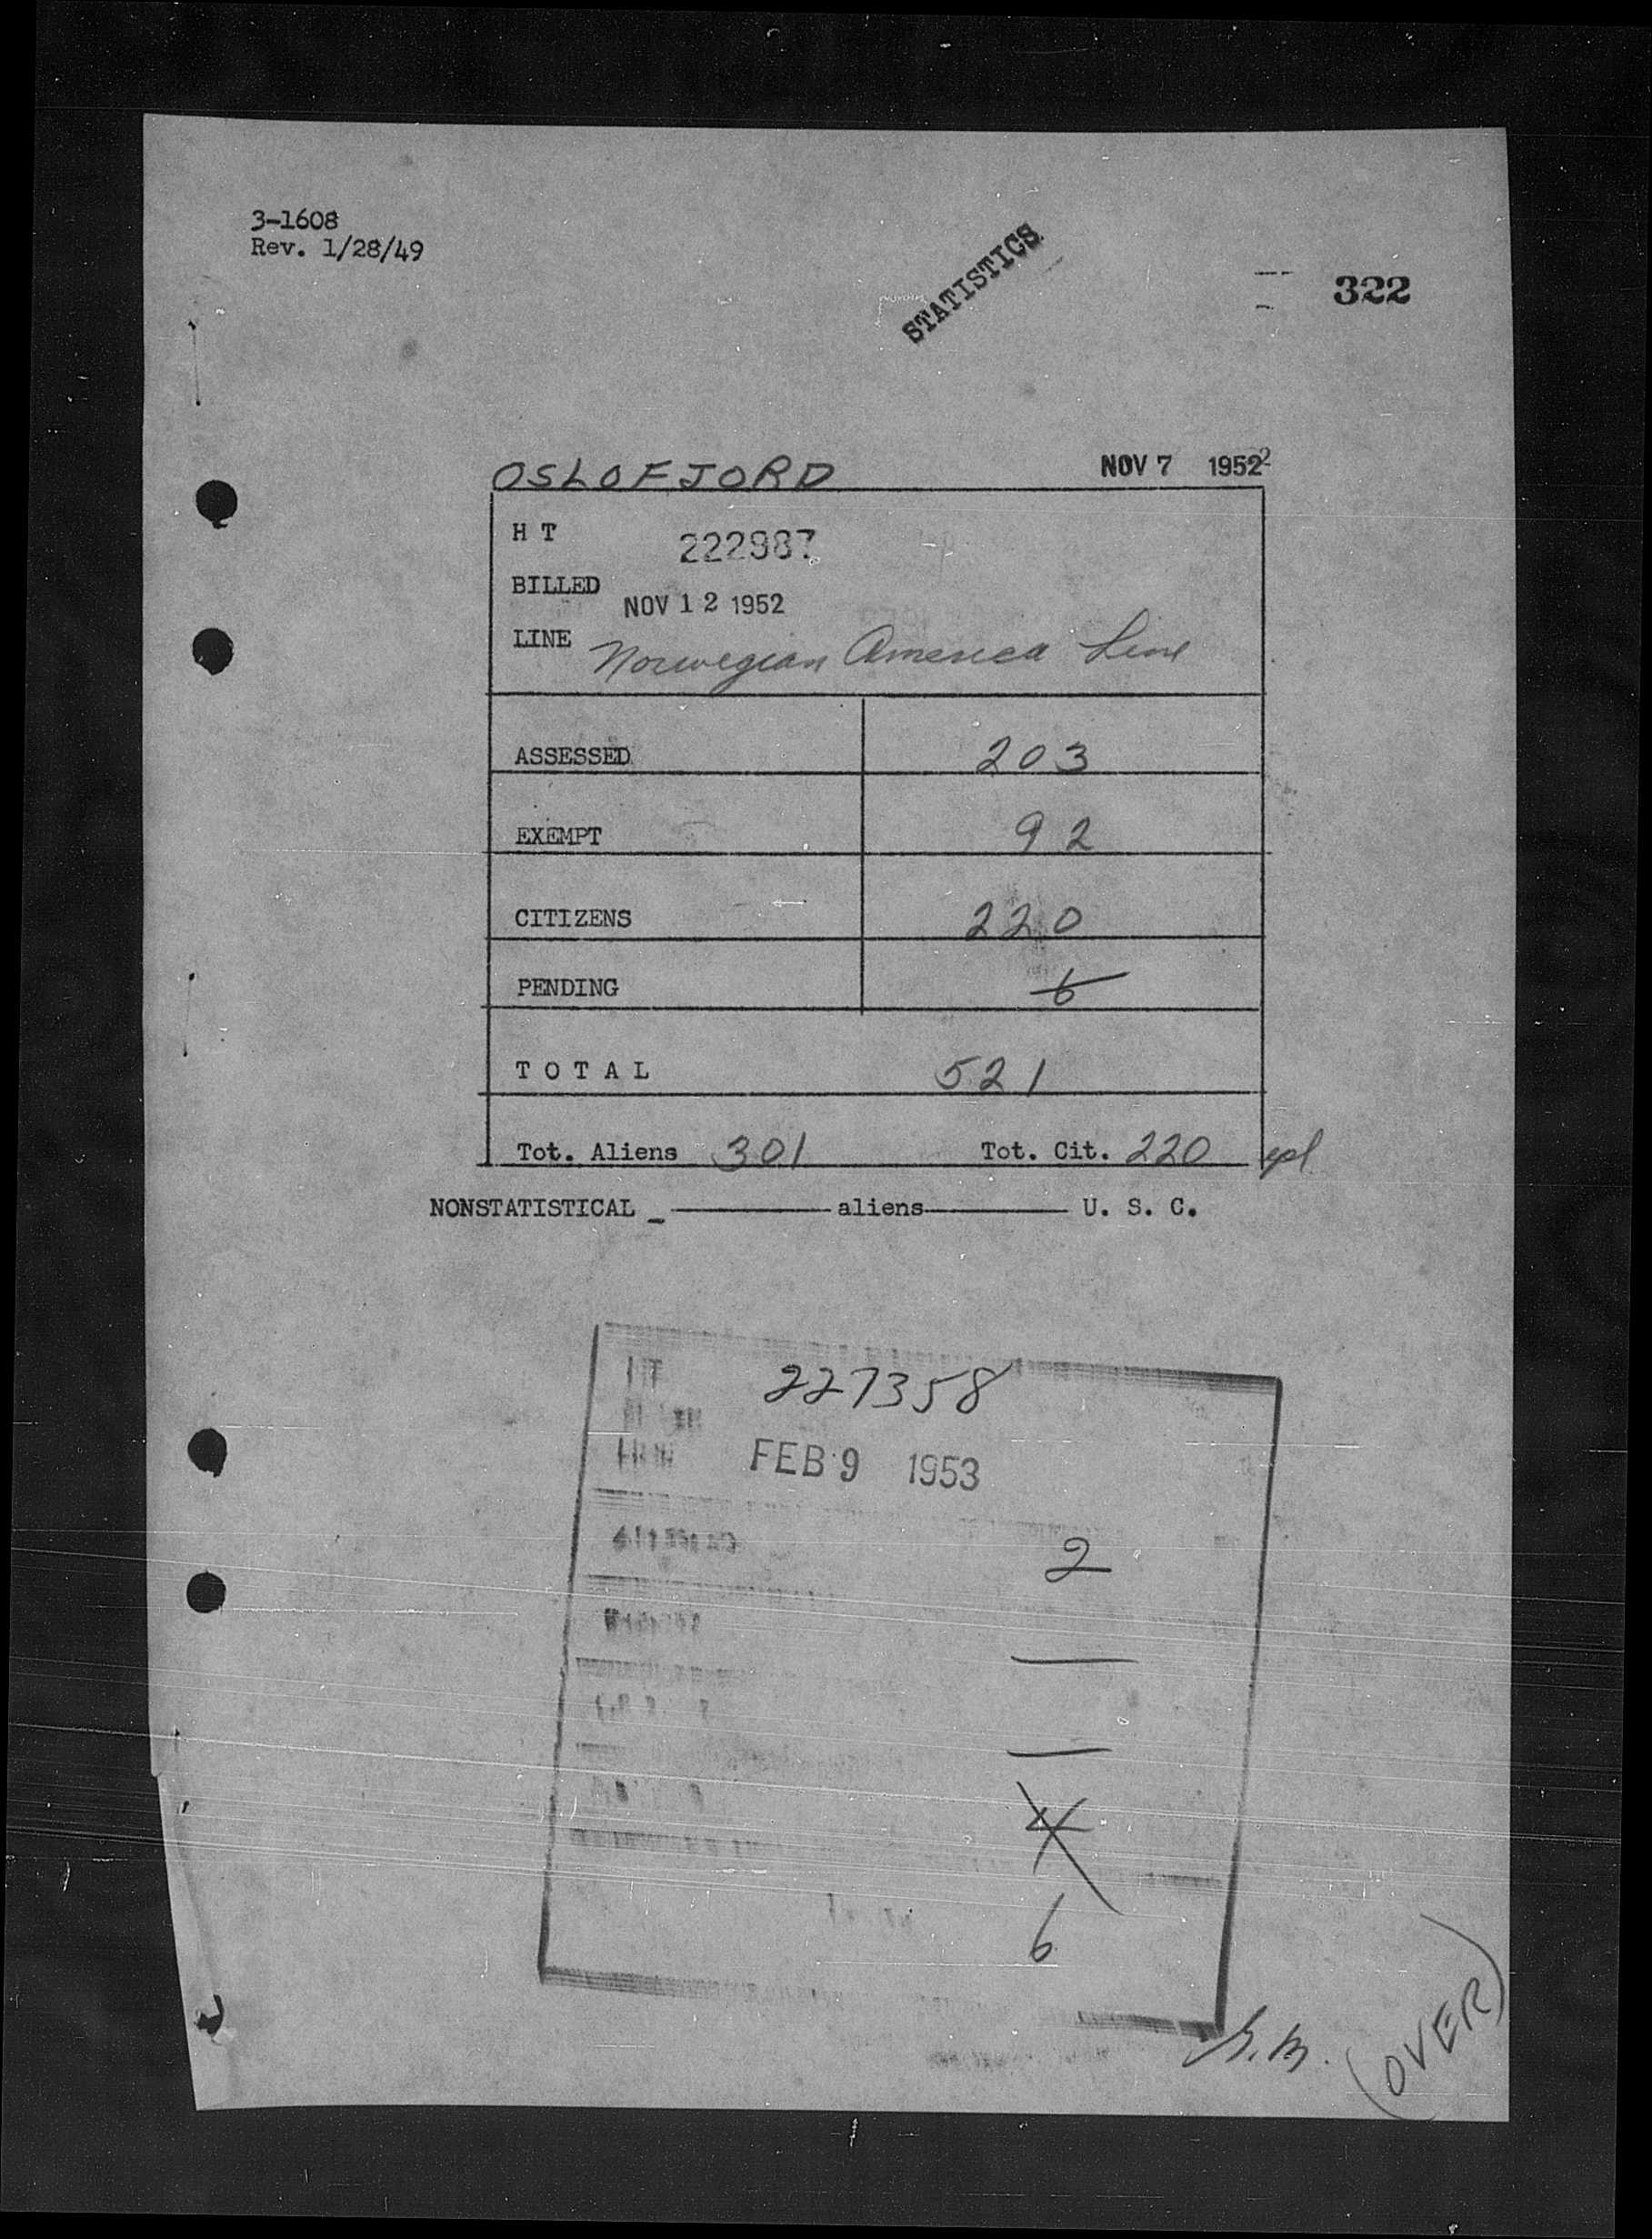 3-1608
Rev. 1/28/49
STATISTICS
322
OSLOFJORD NOV 7 1952 2
H T 222987
BILLED NOV 12 1952
LINE Norwegian America Line
ASSESSED 203
EXEMPT 92
CITIZENS 220
PENDING 6
T O T A L 521
Tot. Aliens 301 Tot. Cit. 220
NONSTATISTICAL _ aliens U. S. C.
HT 227358
FEB 9 1953
2
4
6
(OVER)